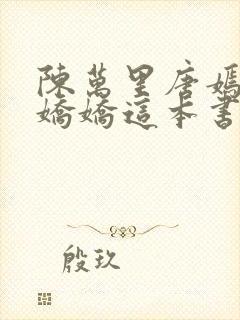 陳萬里唐嫣
嬌嬌這本書
殷玖